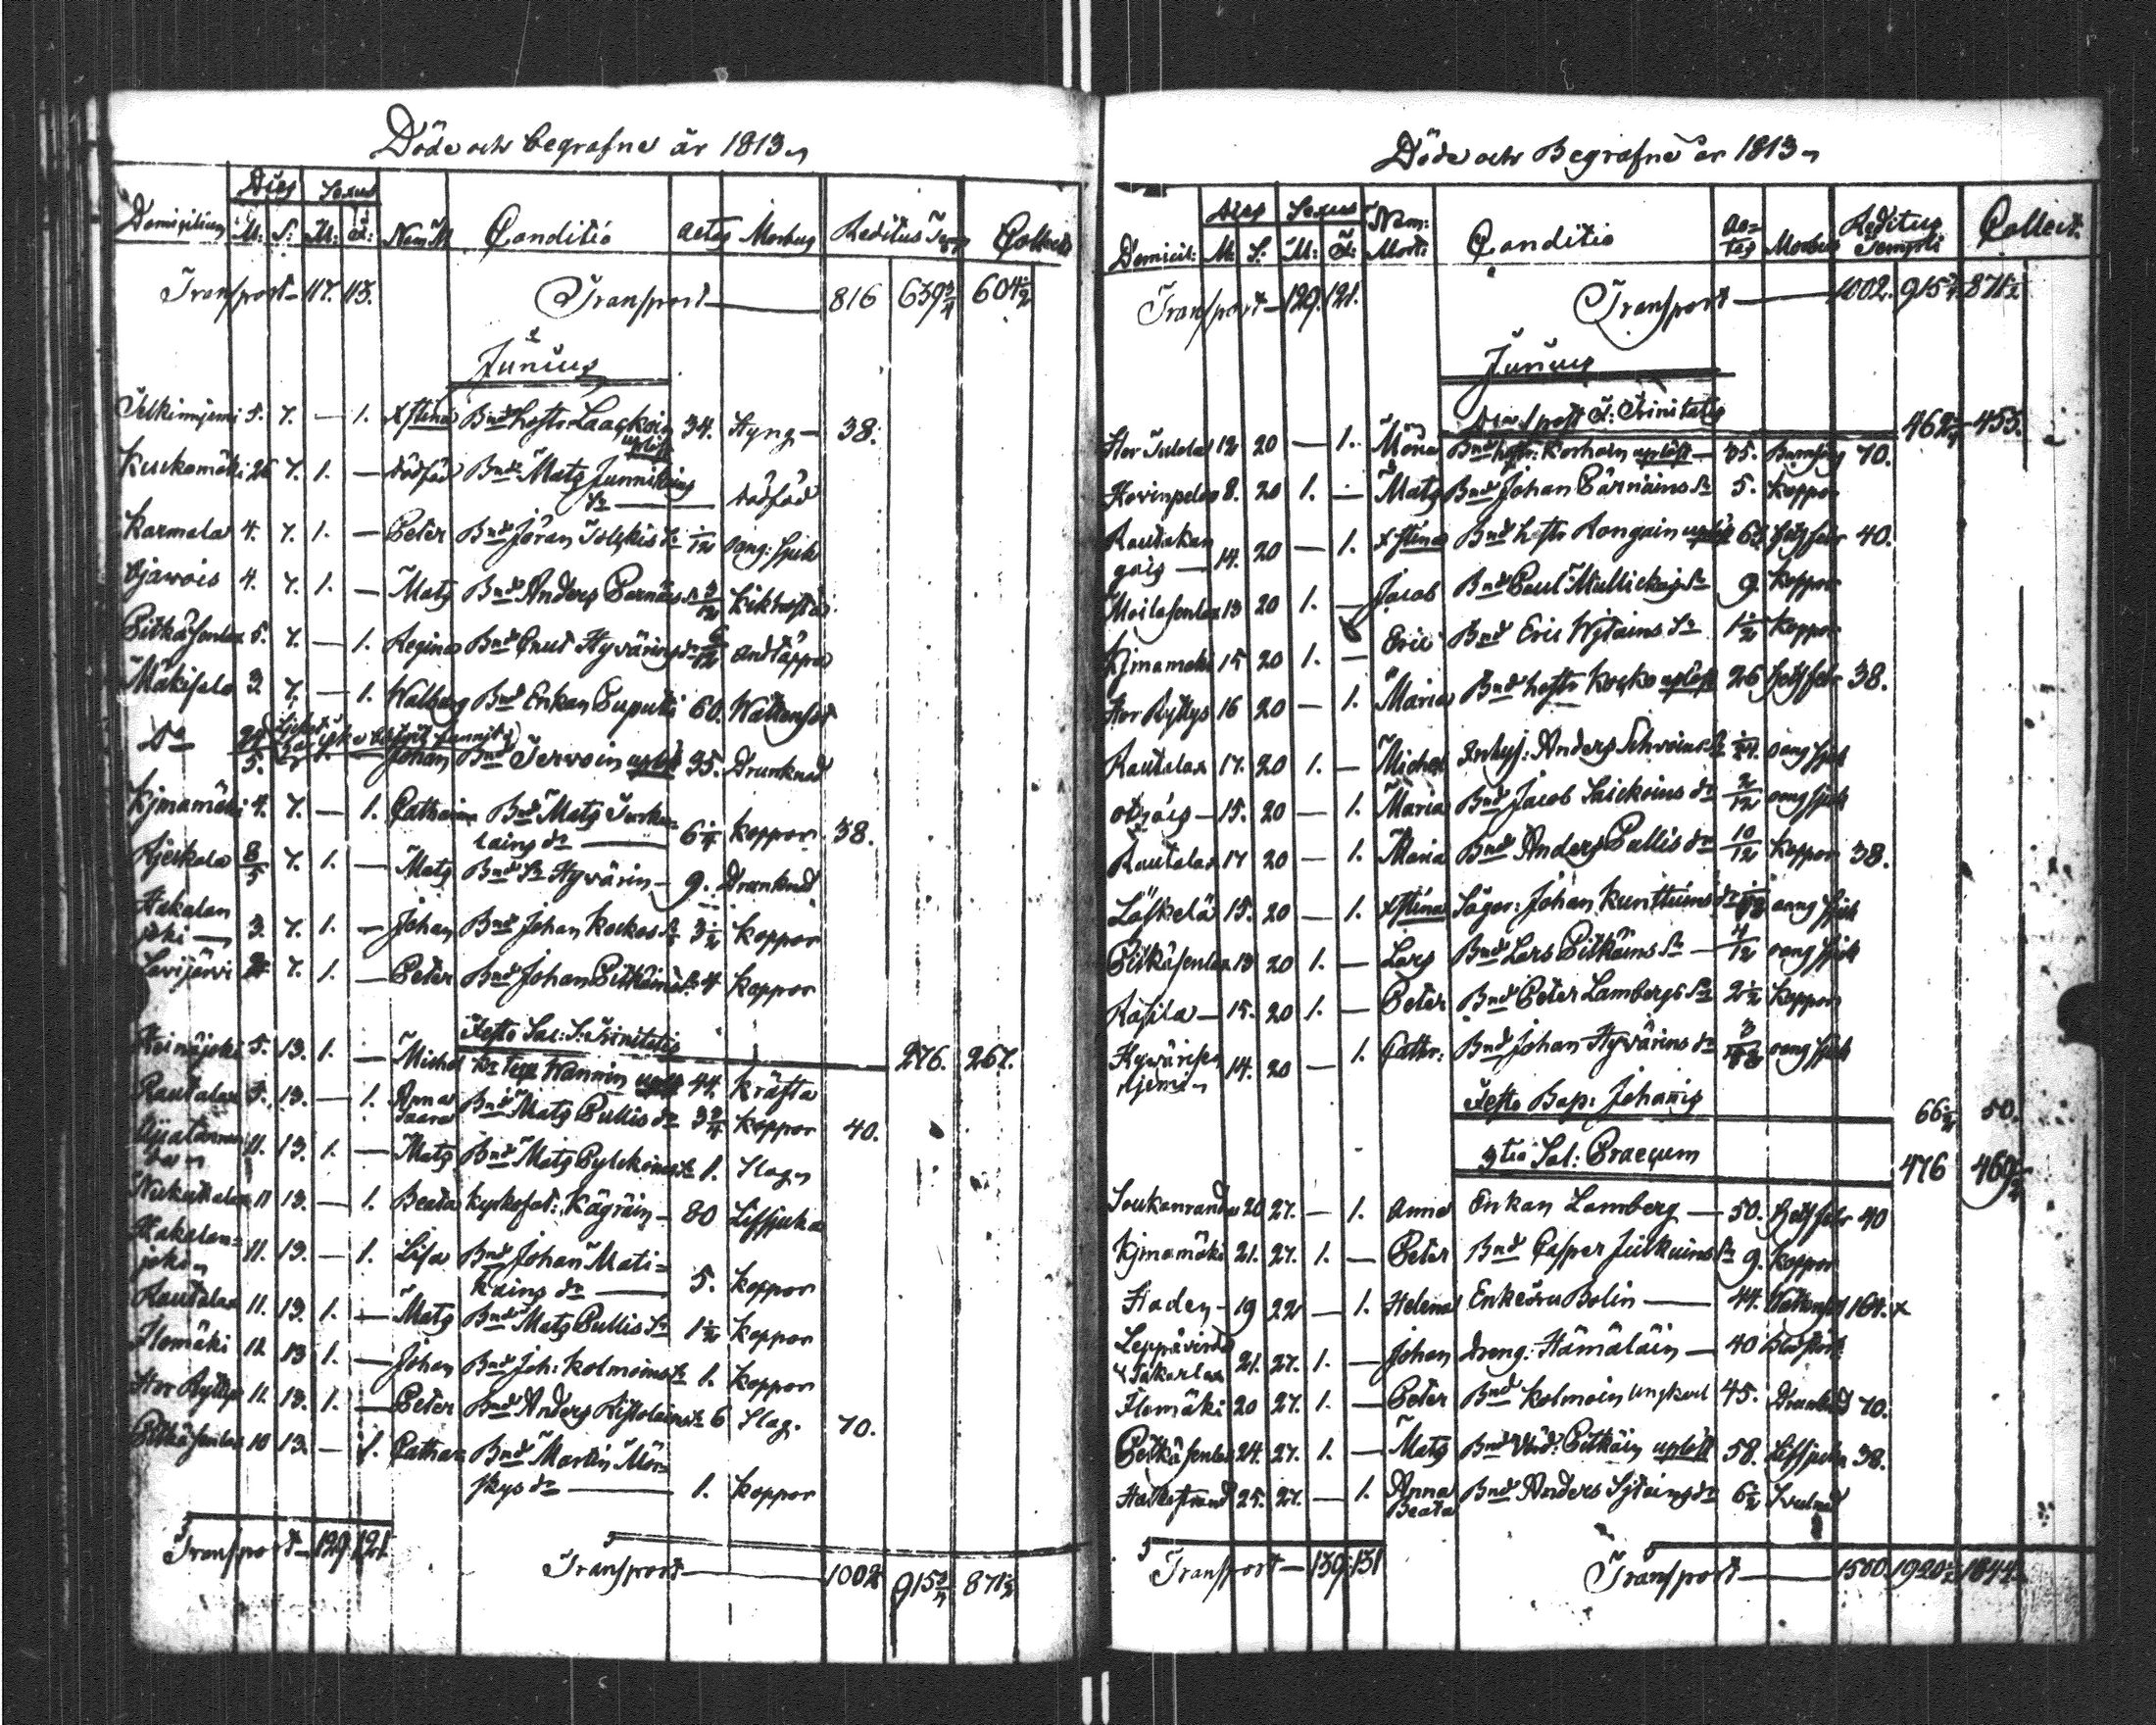 Döde och begrafne år 1813
Domicilium Dies Sexus Nom: M Conditio aetas Morbus Reditus Templi Collect
M: S: M: F:
Transport 117. 113. Transport 816 639 3/4 604 1/2
Junius
5. 7. — 1. Xstina Bnd hustr Laackoin 34. Hyng 38.
Kuckomäki 26 7. 1. — dödföd Bnd Mats Junnikains
Sn — dödföd
Karmala 4. 7. 1. — Peter Bnd Jöran Sn 1/12 ong: sjuk
Ojawois 4. 7. 1. — Mats Bnd Anders Parnäs Sn 3/12 Kikhosta
Pitkäsenlax 5. 7. — 1. Regina Bnd Knut Hyvärins dr 6/12 andtäppa
Mäkisalo 3. 7. — 1. Walborg Bnd Enkan Puputti 60. Wattusot
Do 5. Johan Bnd Terwoin uplöst 35. Drunknad
Kjmamäki 4. 7. — 1. Catharina Bnd Mats Turku=
lains dr — 6 1/4 koppor 38.
Kjeckala 8/5 7. 1. — Mats Bnd Sn Hyvärin 9. Drunknad
Hakalan
joki — 3. 7. 1. — Johan Bnd Johan Kockos Sn 3 1/2 koppor
Savijärvi 7. 1. — Peter Bnd Johan Pitkäins Sn 4 koppor
Festo Sac: S: Trinitatis 276. 267.
Heinäjoki 5. 13. 1. — Michel Wannin uplöst 44. kräfta
Rautalax 5. 13. — 1. Anna
Saara Bnd Mats Pullis dr 3 3/4 koppor 40.
11. 13. 1. — Mats Bnd Mats Pylckönens Sn 1. Slag
Niskulax 11 13. — 1. Beata kyrkofat: Kägräin — 80 Lifsjuka
Hakalan=
joki 11. 13. — 1. Lisa Bnd Johan Mati=
kains dr — 5. koppor
Rautalax 11. 13. 1. — Mats Bnd Mats Pullis Sn 1 1/2 koppor
Ilomäki 12 13 1. — Johan Bnd Joh: Kolmoins Sn 1. koppor
Stor Ryttys 11. 13. 1. — Peter Bnd Anders Ristolains Sn 6 Slag. 70.
Pitkäsenlax 10 13. — 1. Cathar: Bnd Martin Mör=
skys dr — 1. koppor
Transport — 129. 121 Transport — 1002 915 3/4 871 1/2
Döde och Begrafne år 1813
Domicil: Dies Sexus Nom: Mort: Conditio Ae=tas Morbus Reditus Templi Collect:
M: S: M: F:
Transport — 129. 121. Transport — 1002. 915 3/4 871 1/2
Junius
Dom 1 post F: Trinitatis 462 453.
Stor Sulola 12 20 — 1. Mona Bnd hustr: Korhoin uplöst 35. Barnsäng 70.
Kovinpelto 8. 20 1. — Mats Bnd Johan Pärnäins Sn 5. koppor
Rautakan
gas — 14. 20 — 1. Xstina Bnd hustr Rongain uplöst 63. hetsfebr 40.
Moilasenlax 13 20 1. — Jacob Bnd Paul Mullickas Sn 9. koppor
Kjmamäki 15 20 1. — Eric Bnd Eric Wjtains Sn 1 1/2 koppor
Stor Ryttys 16 20 — 1. Maria Bnd hustr Kocko uplöst 26 hetsfebr 38.
Rautalax 17. 20 1. — Michel Inhys: Anders Sn 1/24. ong sjuk
15. 20 — 1. Maria Bnd Jacob Laickoins dr 2/12 ong sjuk
Rautalax 17 20 — 1. Maria Bnd Anders Pullis dr 10/12 koppor 38.
Läskelä 15. 20 — 1. Xstina Johan Kunttuins dr ong sjuk
Pitkäsenlax 13 20 1. — Lars Bnd Lars Pitkäins Sn — 4/12 ong sjuk
Rasila — 15. 20 1. — Peter Bnd Peter Lambergs Sn 2 1/2 koppor
Hyvärisen
njemi 14. 20 — 1. Cathr: Bnd Johan Hyvärins dr ong sjuk
Festo Bap: Johanis 66 1/2 50.
3tio Sol: Precum 476 469 1/2
Soukanranda 20 27. — 1. Anna Enkan Lamberg — 50. hetsfebr 40
Kjmamäki 21. 27. 1. — Peter Bnd Casper Julkuins Sn 9. koppor
Staden — 19 22 — 1. Helena Enkefru Bolin — 44. Wattusot 164. x
Leppävirda
21. 27. 1. — Johan dreng: Hämäläin — 40 Blodstört:
Ilomäki 20 27. 1. — Peter Bnd Kolmoin ungkarl 45. Drunknad 70.
Pitkäsenlax 24. 27. 1. — Mats Bnd Pitkäin uplöst 58. Lifsjuka 38.
Hatkostrand 25. 27. — 1. Anna
Beata Bnd Anders Sjtains dr 6 1/2
Transport — 139. 131 Transport — 1500. 1920 1844